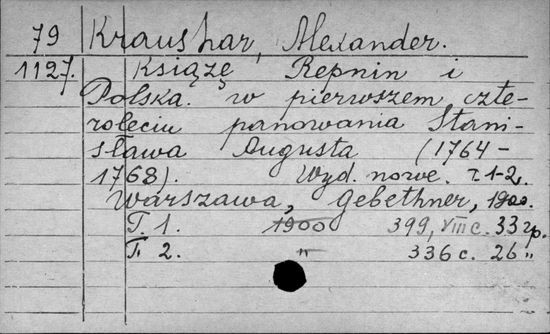 79 Kraushar, Alexander.
1127. Książę Repnin i
Polska. w pierwszem czte-
roleciu panowania Stani-
sława Augusta (1764-
1768). Wyd. nowe. T. 1-2.
Warszawa, Gebethner, 1900.
T. 1. 1900 399, VIII c. 33 гр.
T. 2. " 336 c. 26 "